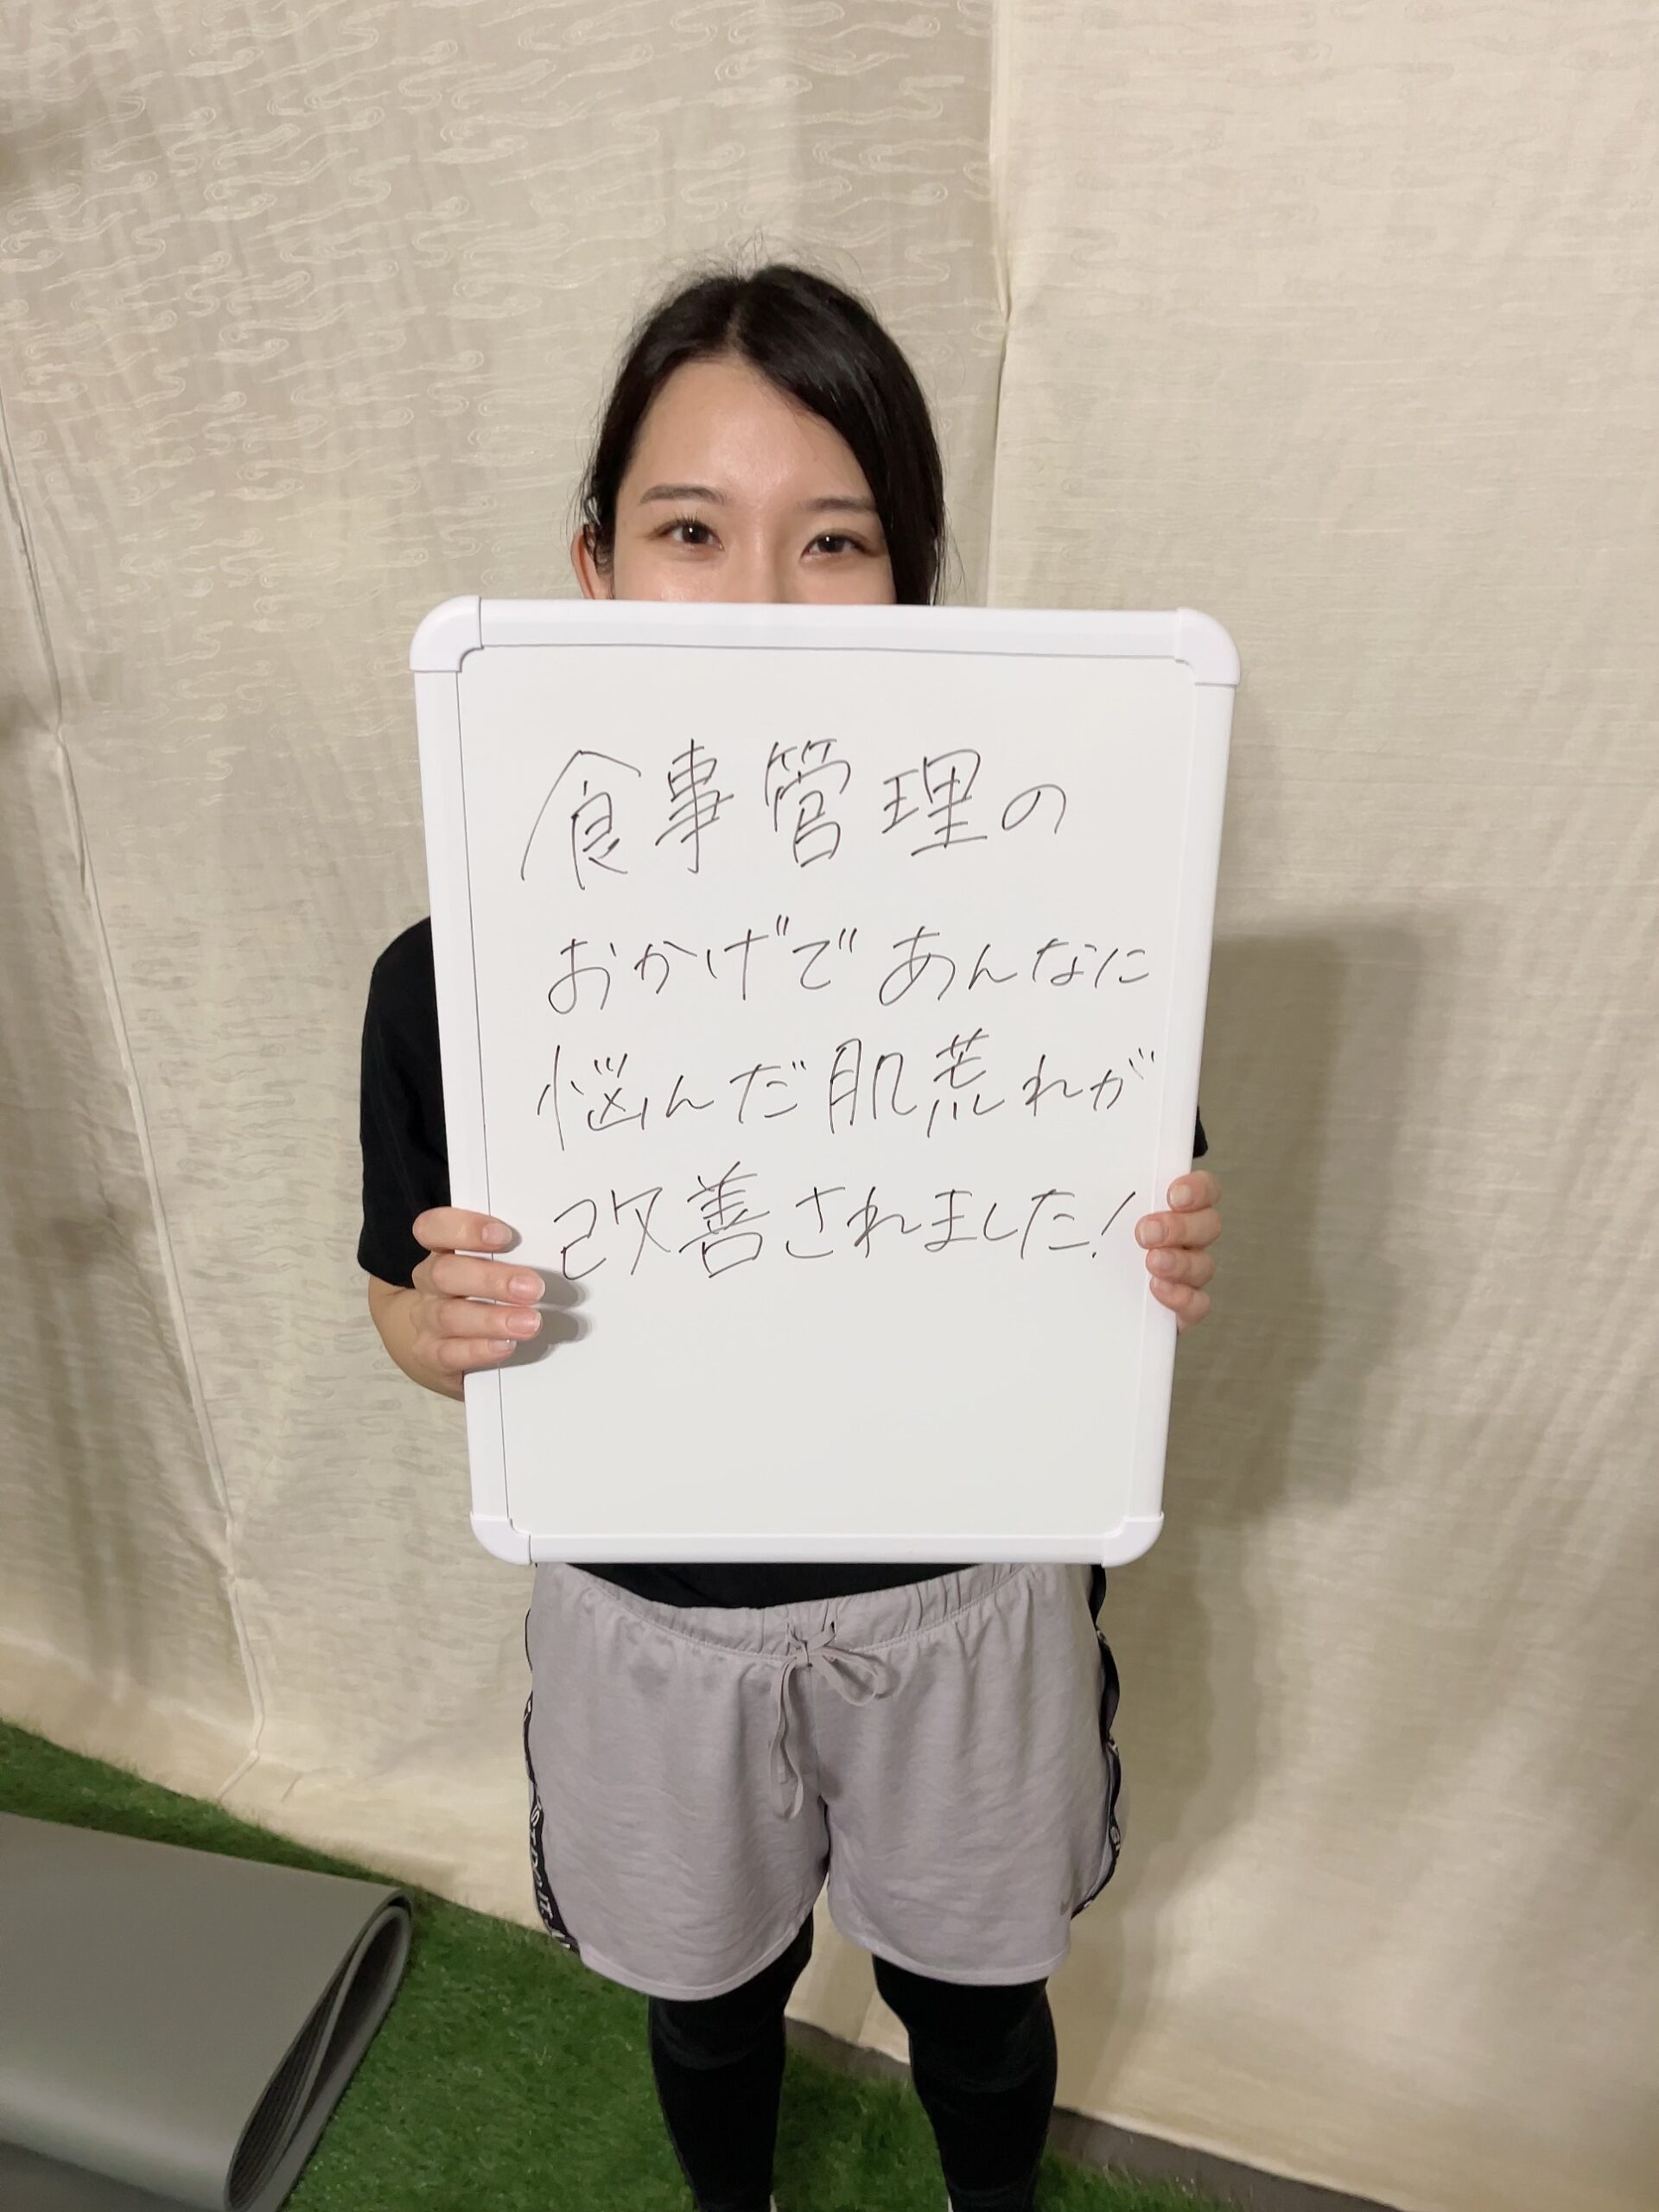 食事管理の
おかげであんなに
悩んだ肌荒れが
改善されました!